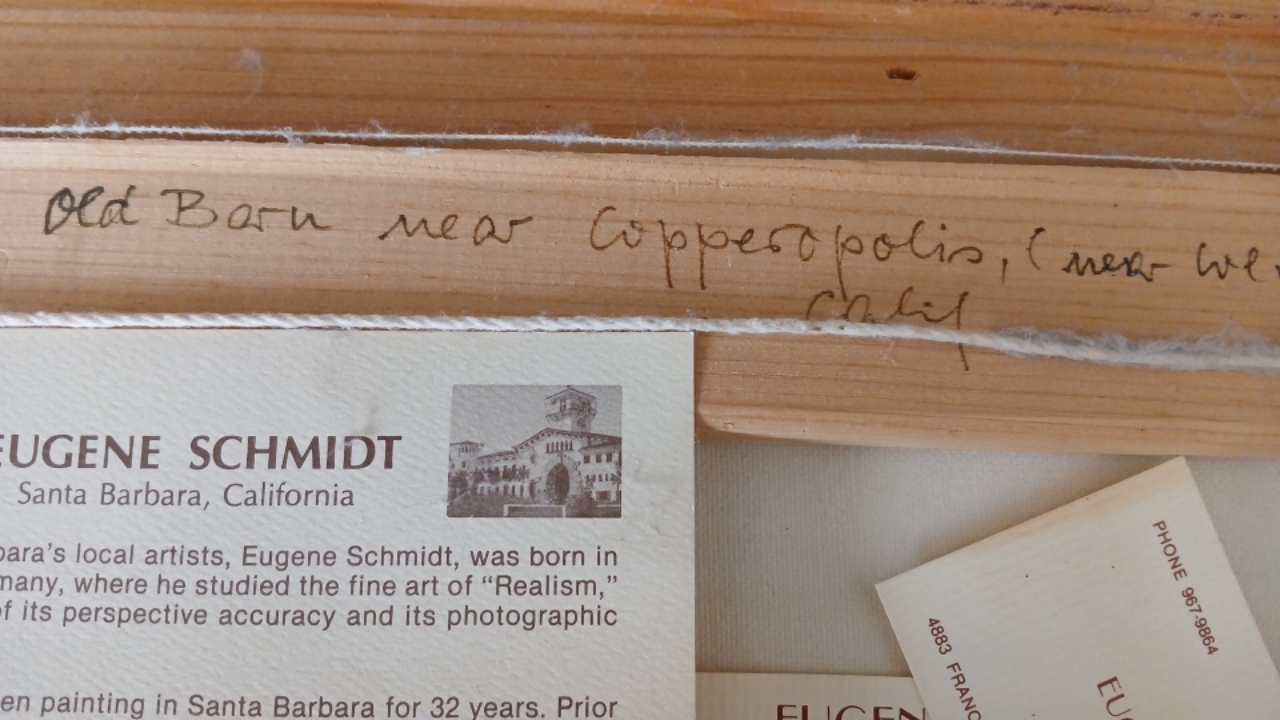 Old Barn near Copperopolis, (near
Calif
EUGENE SCHMIDT
Santa Barbara, California
bara's local artists, Eugene Schmidt, was born in
many, where he studied the fine art of “Realism,”
of its perspective accuracy and its photographic
en painting in Santa Barbara for 32 years. Prior
PHONE 967-9864
4883 FRANC
EU
EUGEN